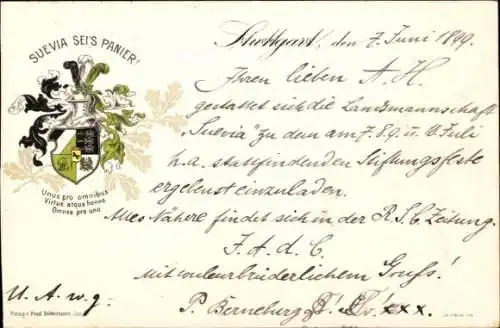 SUEVIA SEI'S PANIER!
Stuttgart, den 7. Juni 1899.
Ihren lieben A. H.
gestattet sich die Landsmannschaft
"Suevia" zu dem am 7. 8. 9. u. 10. Juli
h.a. stattfindenden Stiftungsfeste
ergebenst einzuladen.
Alles Nähere findet sich in der R.S.C. Zeitung.
I. A. d. C.
mit couleurbrüderlichem Gruss!
P. Berneburg xxx.
Unus pro omnibus
Virtus atque honos
Omnes pro uno
U. A. w. g.